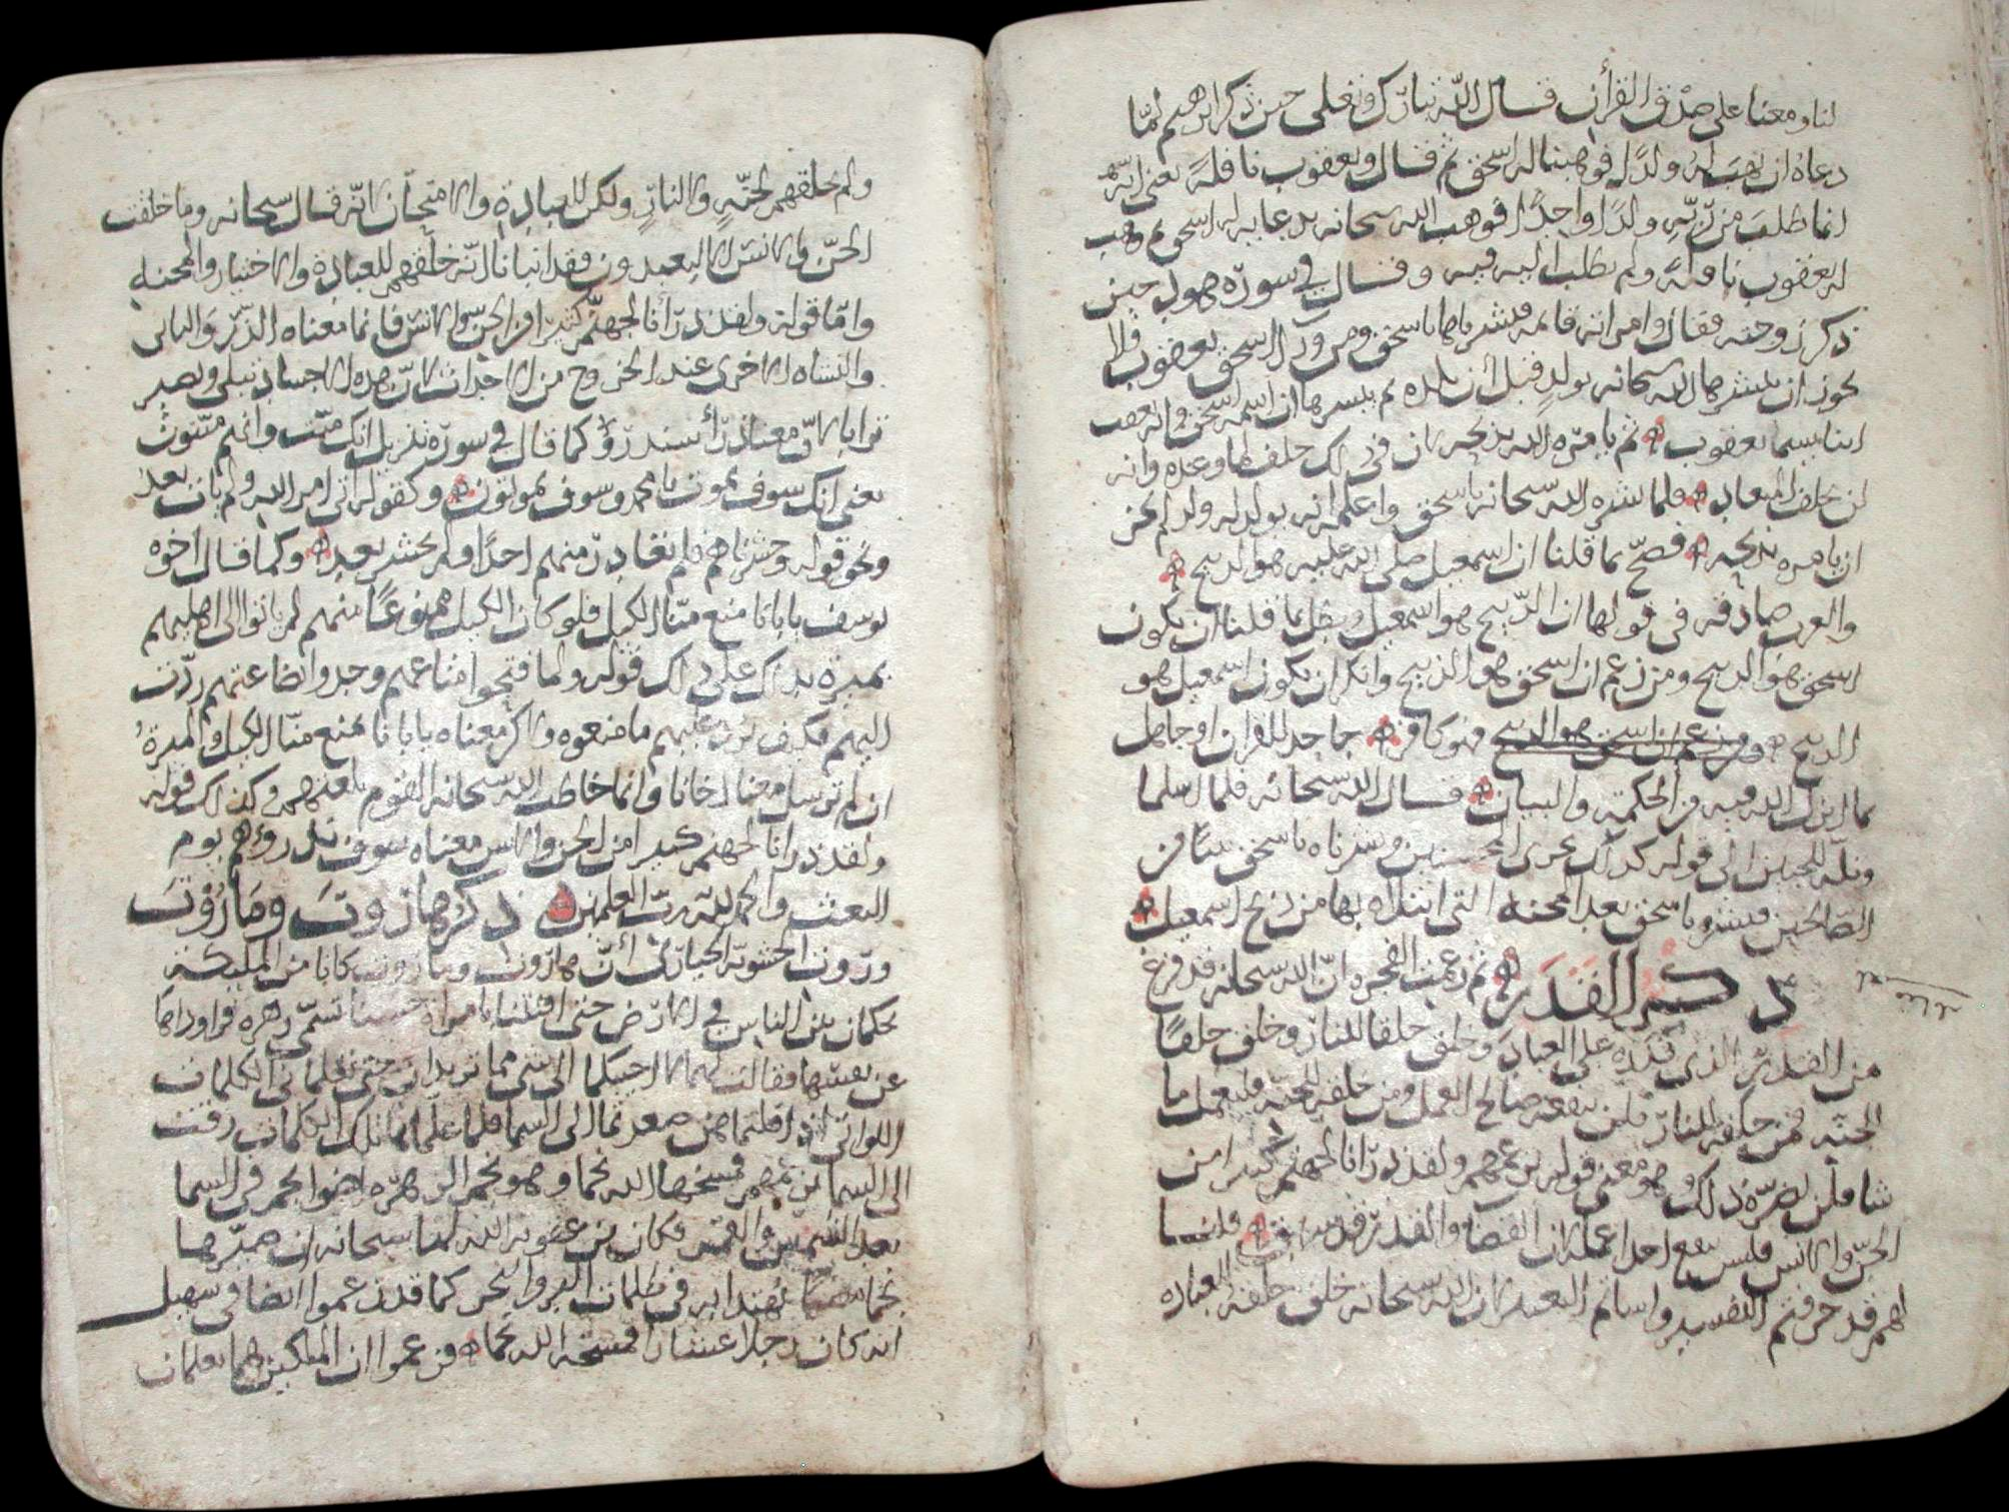 لنا ومعنا على صدق القرآن قال الله تبارك وتعلى حين ذكر ابرهيم لمّا
دعاه ان يهب له ولدًا فوهبنا له اسحق ثم قال ويعقوب نافلة يعنى انه
انما طلب من ربّه ولدًا واحدًا فوهب الله سحانه بدعايه له اسحق ثم وهب
له يعقوب نافلة ولم يطلب اليه فيه وقال في سورة هود حين
ذكر زوجته فقال وامراته قايمه فبشرناها باسحق ومن ورا اسحق يعقوب ولا
يجوز ان يبشرها الله سحانه بولد قبل أن تلده ثم يبشرها ان اسمه اسحق وانه يعقب
ابنا يسما يعقوب ثم يامره الله بذبحه لان في ذلك خلف لما وعده وانه
لن يخلف الميعاد فلما بشره الله سحانه باسحق واعلمه انه يولد له ولد لم يجز
ان يامره بذبحه فصحّ بما قلنا ان اسمعيل صلى الله عليه هو الذبيح
والعرب صادقه في قولها ان الذبيح هو اسمعيل وبطل بما قلنا ان يكون
اسحق هو الذبيح ومن زعم ان اسحق هو الذبيح وانكر ان يكون اسمعيل هو
الذبيح ومن زعم ان اسحق هو الذبيح فهو كافر جاحد للقران او جاهل
بما انزل الله فيه من الحكمة والبيان قال الله سحانه فلما اسلما
وتله للجبين الى قوله كذلك نجزى المحسنين وبشرناه باسحق نبيًا من
الصالحين فبشره باسحق بعد المحنه التى ابتلاه بها من ذبح اسمعيل
ذكر القدر ثم زعمت الفجره انّ الله سحانه قد فرغ
من القدر الذى قدّره على العباد وخلق خلقا للنار وخلق خلقًا
للجنة فمن خلقه للنار فلن ينفعه صالح العمل ومن خلقه للجنة فليعمل ما
شا فلن يضرّه ذلك وهو معنى قوله بزعمهم ولقد ذرانا لجهنم كثيرا من
الجنّ والانس فليس ينفع احدا عمله لان القضا والقدر قد سبق قلنا
لهم قد حرفتم التفسير واساتم التعبير لان الله سحانه خلق خلقه للعباده
ولم يخلقهم لجنّةٍ ولا لنارٍ ولكن للعبادة والامتحان لانّه قال سحانه وما خلقت
الجنّ والانس الا ليعبدون فقد انبانا انّه خلقهم للعبادة والاختبار والمحنه
وامّا قوله ولقد ذرأنا لجهنم كثيرًا من الجنّ والانس فانما معناه الذّرو الثانى
والنشاه الاخرى عند الخروج من الاجداث لانّ هذه الاجساد تبلى وتصير
ترابا لانّ معنا ذرأ سنذرؤ كما قال في سورة تنزيل انك ميّت وانهم ميّتون
يعنى انك سوف تموت يا محمد وسوف يموتون وكقوله اتى امر الله ولم يات بعد
ونحو قوله وحشرناهم فلم نغادر منهم احدًا ولم يحشر بعد وكما قال اخوه
يوسف يابانا منع منّا الكيل فلو كان الكيل ممنوعًا منهم لم ياتوا الى اهليهم
بميرة يدلك على ذلك قوله ولما فتحوا متاعهم وجدوا بضاعتهم ردّت
اليهم فكيف تردّ عليهم ما منعوه ولاكن معناه يابانا يمنع منّا الكيل والميرة
ان لم ترسل معنا اخانا وانما خاطب الله سحانه القوم بلغتهم وكذلك قوله
ولقد ذرانا لجهنم كثيرا من الجن والانس معناه سوف نذرؤهم يوم
البعث والحمد لله ربّ العلمين ذكر هاروت وماروت
وروت الحشويّه الخبارى أنّ هاروت وماروت كانا من المليكة
يحكمان بين الناس في الارض حتى افتتنا بامراة حسنا تسمّى زهره فراوداها
عن نفسها فقالت لهما لا اجيبكما الى شى مما تريدان حتى تعلمانى الكلمات
اللواتى اذا قلتماهن صعدتما الى السما فلما علّماها تلك الكلمات رقت
الى السما بزعمهم فمسخها الله نجما وهو نجم الزهرّه اضوا نجم في السما
بعد الشمس والقمر فكان من عقوبه الله لها سحانه ان صيّرها
نجما يهتدا به في ظلمات البر والبحر كما قد زعموا ايضا في سهيل
انه كان رجلا عشارا فمسخه الله نجما وزعموا ان الملكين هما يعلمان